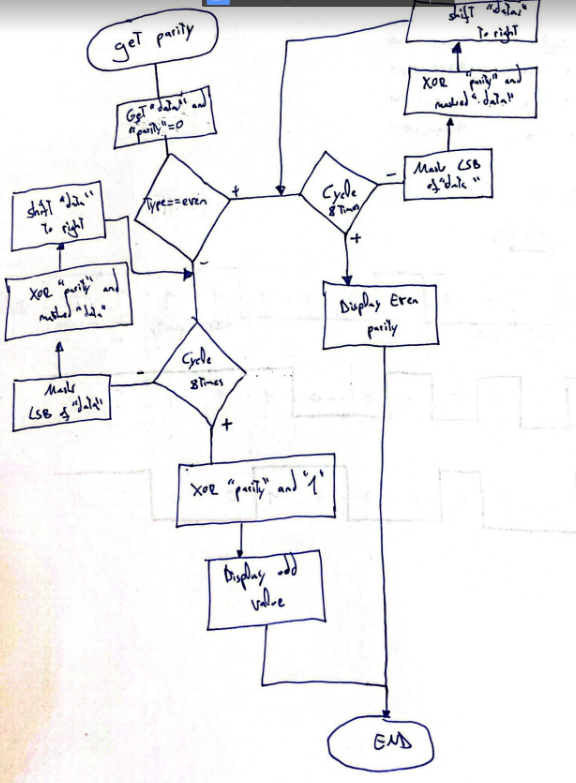 get parity
Get "data" and
"parity"=0
Type==even
+
-
shift "data"
To right
XOR "parity" and
masked "data"
Mask LSB
of "data"
-
Cycle
8 Times
+
Display Even
parity
shift "data"
To right
XOR "parity" and
masked "data"
Mask
LSB of "data"
-
Cycle
8 Times
+
XOR "parity" and "1"
Display odd
value
END